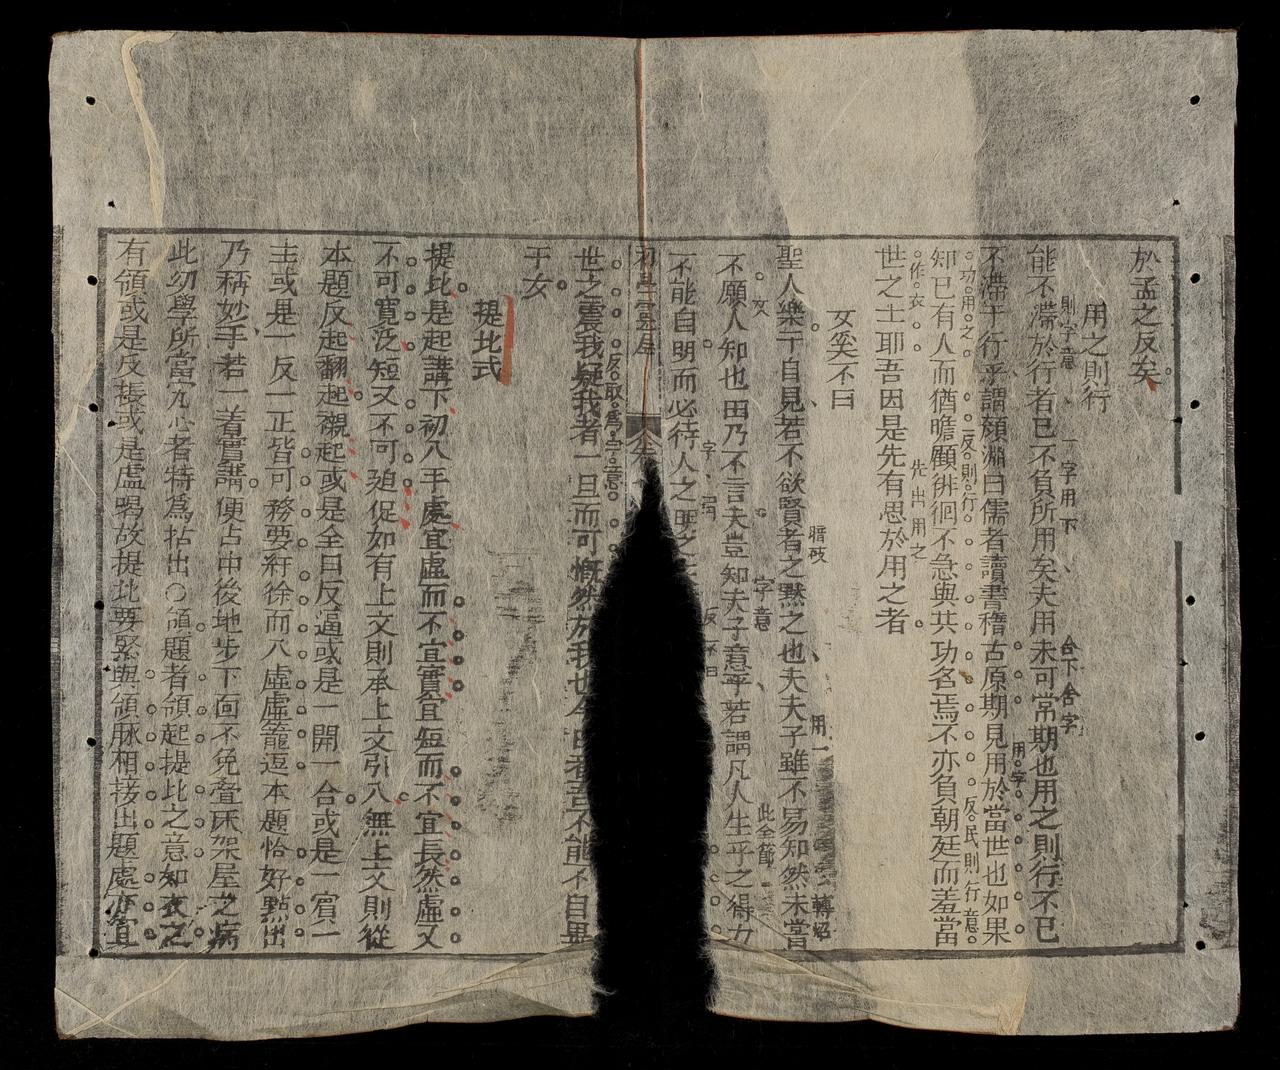 於孟之反矣
用之則行
則字意 一字用下 合下舍字
能不滯於行者已不負所用矣夫用未可常期也用之則行不已
不滯于行乎謂顏淵曰儒者讀書稽古原期見用於當世也如果
功用之 反則行 用字
知已有人而猶瞻顧徘徊不急與共功名焉不亦負朝廷而羞當
反民則行意
世之士耶吾因是先有思於用之者
作衣 先出用之
女奚不曰
聖人樂于自見若不欲賢者之默之也夫夫子雖不易知然未嘗
暗破 用一 轉紹
不願人知也由乃不言夫豈知夫子意乎若謂凡人生平之得力
女 字意 此全節
不能自明而必待人之明之
字 反不曰
世之震我疑我者一旦而可慨然於我也今由者吾不能不自異
反取為字意
于女
提比式
提比是起講下初入手處宜虛而不宜實宜短而不宜長然虛又
不可寬泛短又不可迫促如有上文則承上文引入無上文則從
本題反起翻起襯起或是全曰反逼或是一開一合或是一賓一
主或是一反一正皆可務要紆徐而入虛虛籠逗本題恰好點出
乃稱妙手若一着實講便占中後地步下面不免疊床架屋之病
此幼學所當究心者特為拈出○領題者領起提比之意如衣之
有領或是反振或是虛喝故提比要緊與領脉相接出題處亦宜